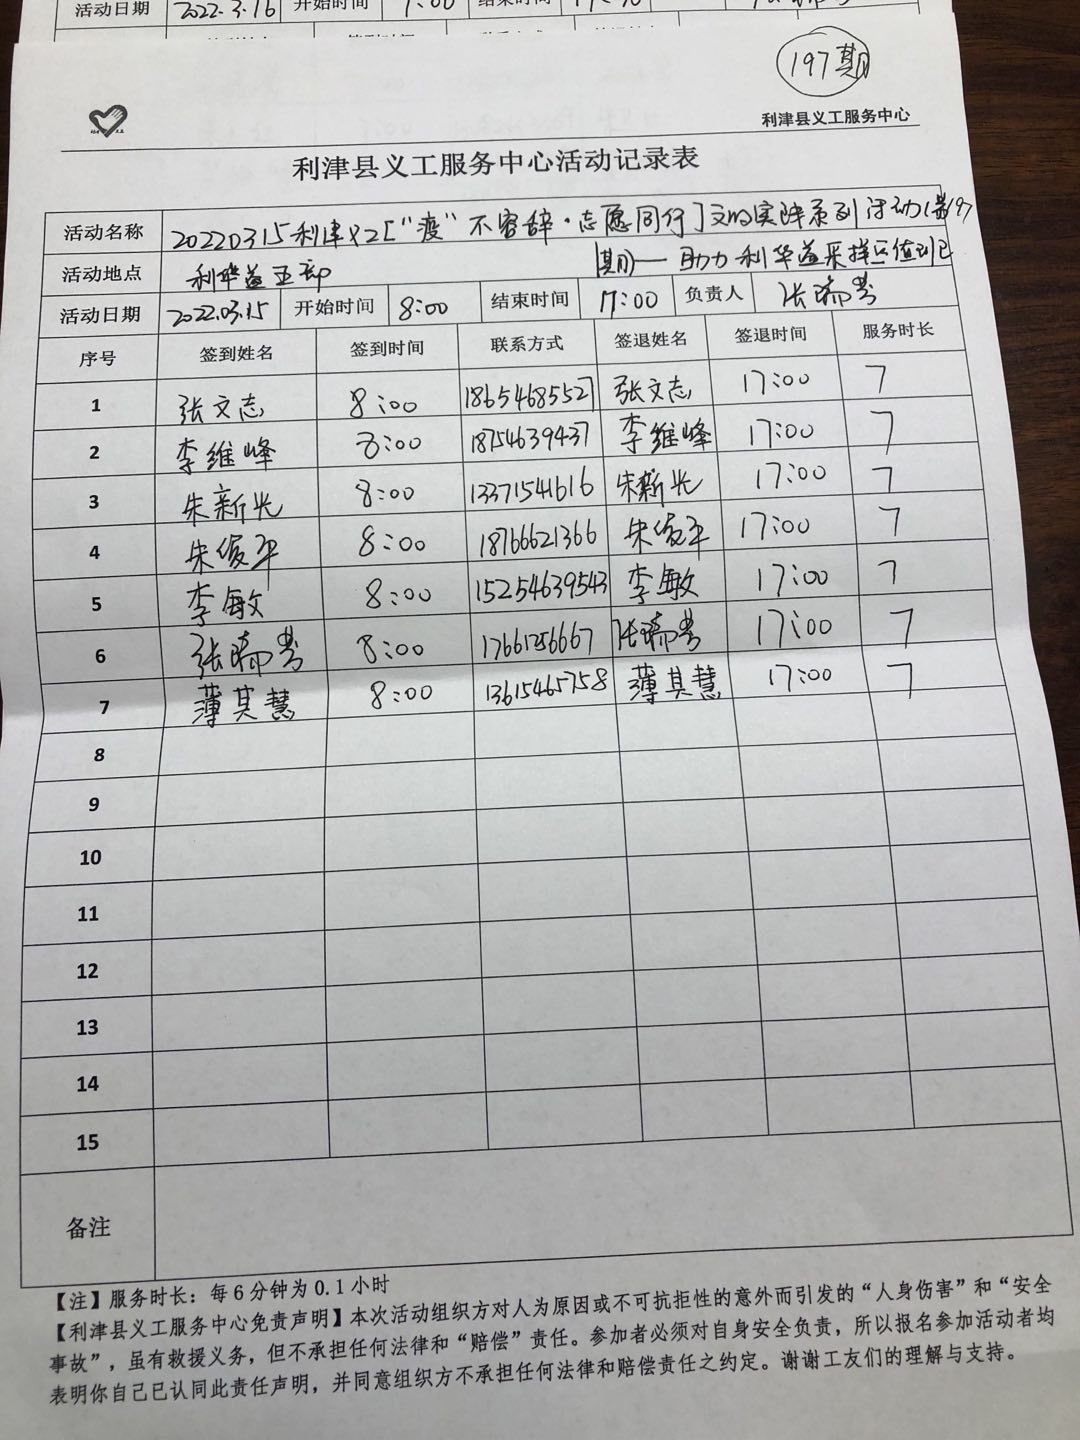 活动日期 2022.3.16 开始时间 结束时间
197期
利津县义工服务中心
利津县义工服务中心活动记录表
活动名称 20220315利津义工["疫"不容辞·志愿同行]文明实践系列活动(第197
活动地点 利华益五部 期)—助力利华益采样区值班
活动日期 2022.03.15 开始时间 8:00 结束时间 17:00 负责人 张瑞芳
序号 签到姓名 签到时间 联系方式 签退姓名 签退时间 服务时长
1 张文志 8:00 18654685527 张文志 17:00 7
2 李维峰 8:00 18754639437 李维峰 17:00 7
3 朱新光 8:00 13371541616 朱新光 17:00 7
4 朱俊平 8:00 18766621366 朱俊平 17:00 7
5 李敏 8:00 15254639543 李敏 17:00 7
6 张瑞芳 8:00 张瑞芳 17:00 7
7 薄其慧 8:00 13615465758 薄其慧 17:00 7
8
9
10
11
12
13
14
15
备注
【注】服务时长：每6分钟为0.1小时
【利津县义工服务中心免责声明】本次活动组织方对人为原因或不可抗拒性的意外而引发的“人身伤害”和“安全
事故”，虽有救援义务，但不承担任何法律和“赔偿”责任。参加者必须对自身安全负责，所以报名参加活动者均
表明你自己已认同此责任声明，并同意组织方不承担任何法律和赔偿责任之约定。谢谢工友们的理解与支持。